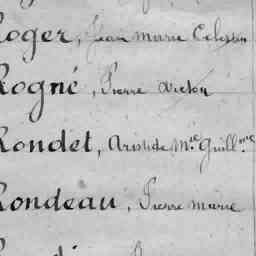 Roger, Jean Marie Celestin
Rogné, Pierre Victor
Rondet, Aristide Mie Guillme
Rondeau, Pierre Marie